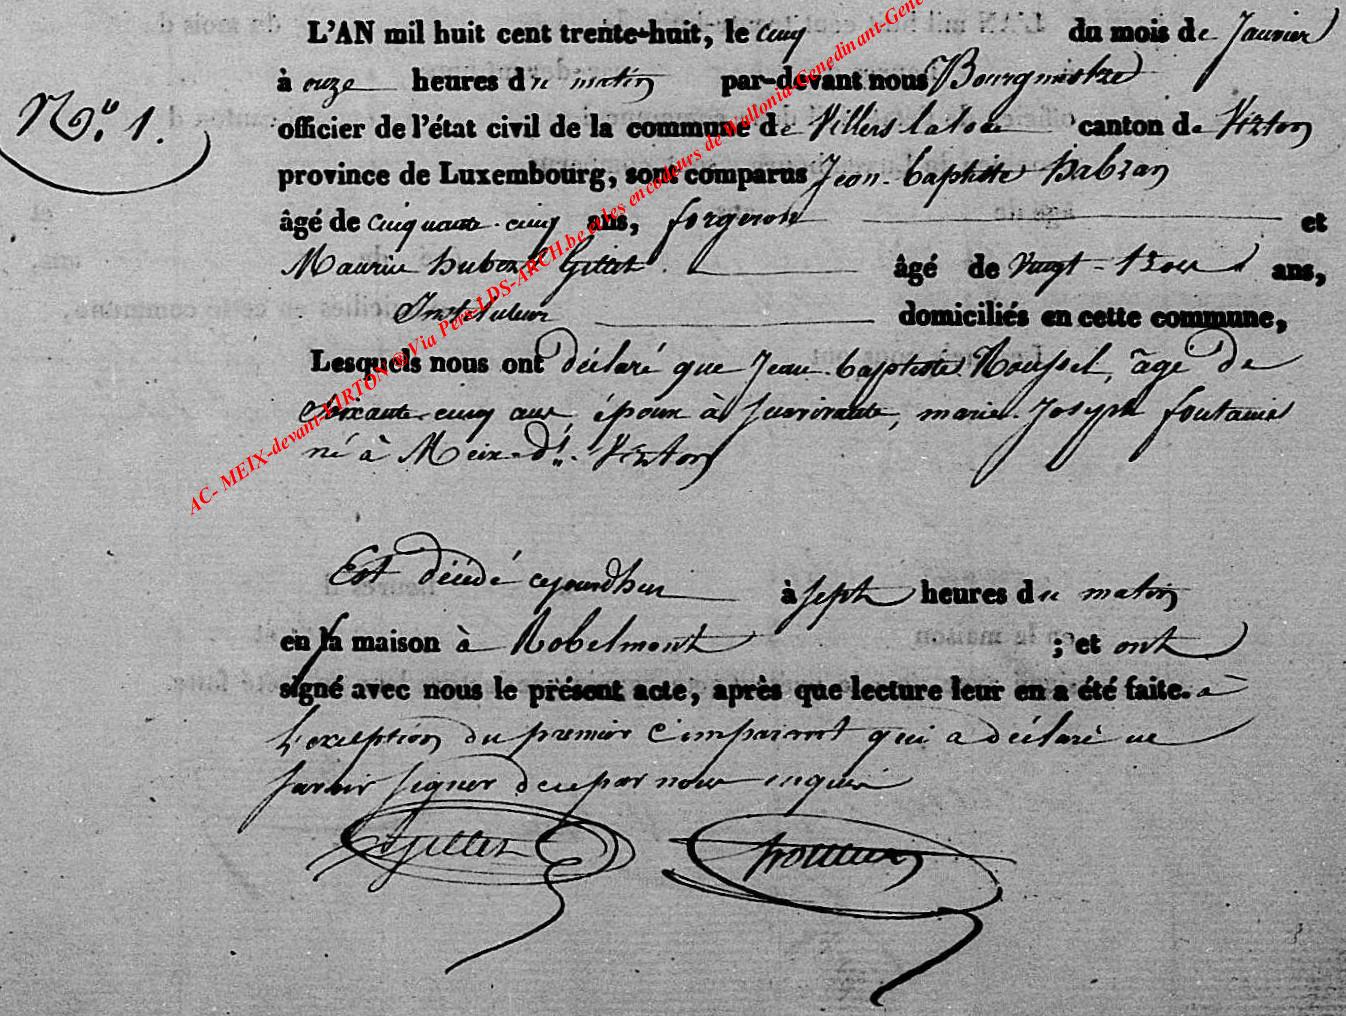 L'AN mil huit cent trente-huit, le cinq du mois de Janvier
à onze heures du matin par-devant nous Bourgmestre
N.º 1.
officier de l'état civil de la commune de Villers la loue canton de Virton
province de Luxembourg, sont comparus Jean-baptiste habran
âgé de cinquante-cinq ans, forgeron et
Maurice hubert Gillet âgé de vingt-trois ans,
Instituteur domiciliés en cette commune,
Lesquels nous ont déclaré que Jean-baptiste Roussel, âgé de
soixante-cinq ans époux à survivante, marie Joseph fontaine
né à Meix-dt. Virton
Est décédé cejourdhui à sept heures du matin
en sa maison à Robelmont ; et ont
signé avec nous le présent acte, après que lecture leur en a été faite. à
l'exception du premier Comparant qui a déclaré ne
savoir signer de ce par nous requis
Gillet
AC- MEIX-devant-VIRTON ®Via Pers-LDS-ARCH.be et les encodeurs de Wallonia-Genedinant-Gene